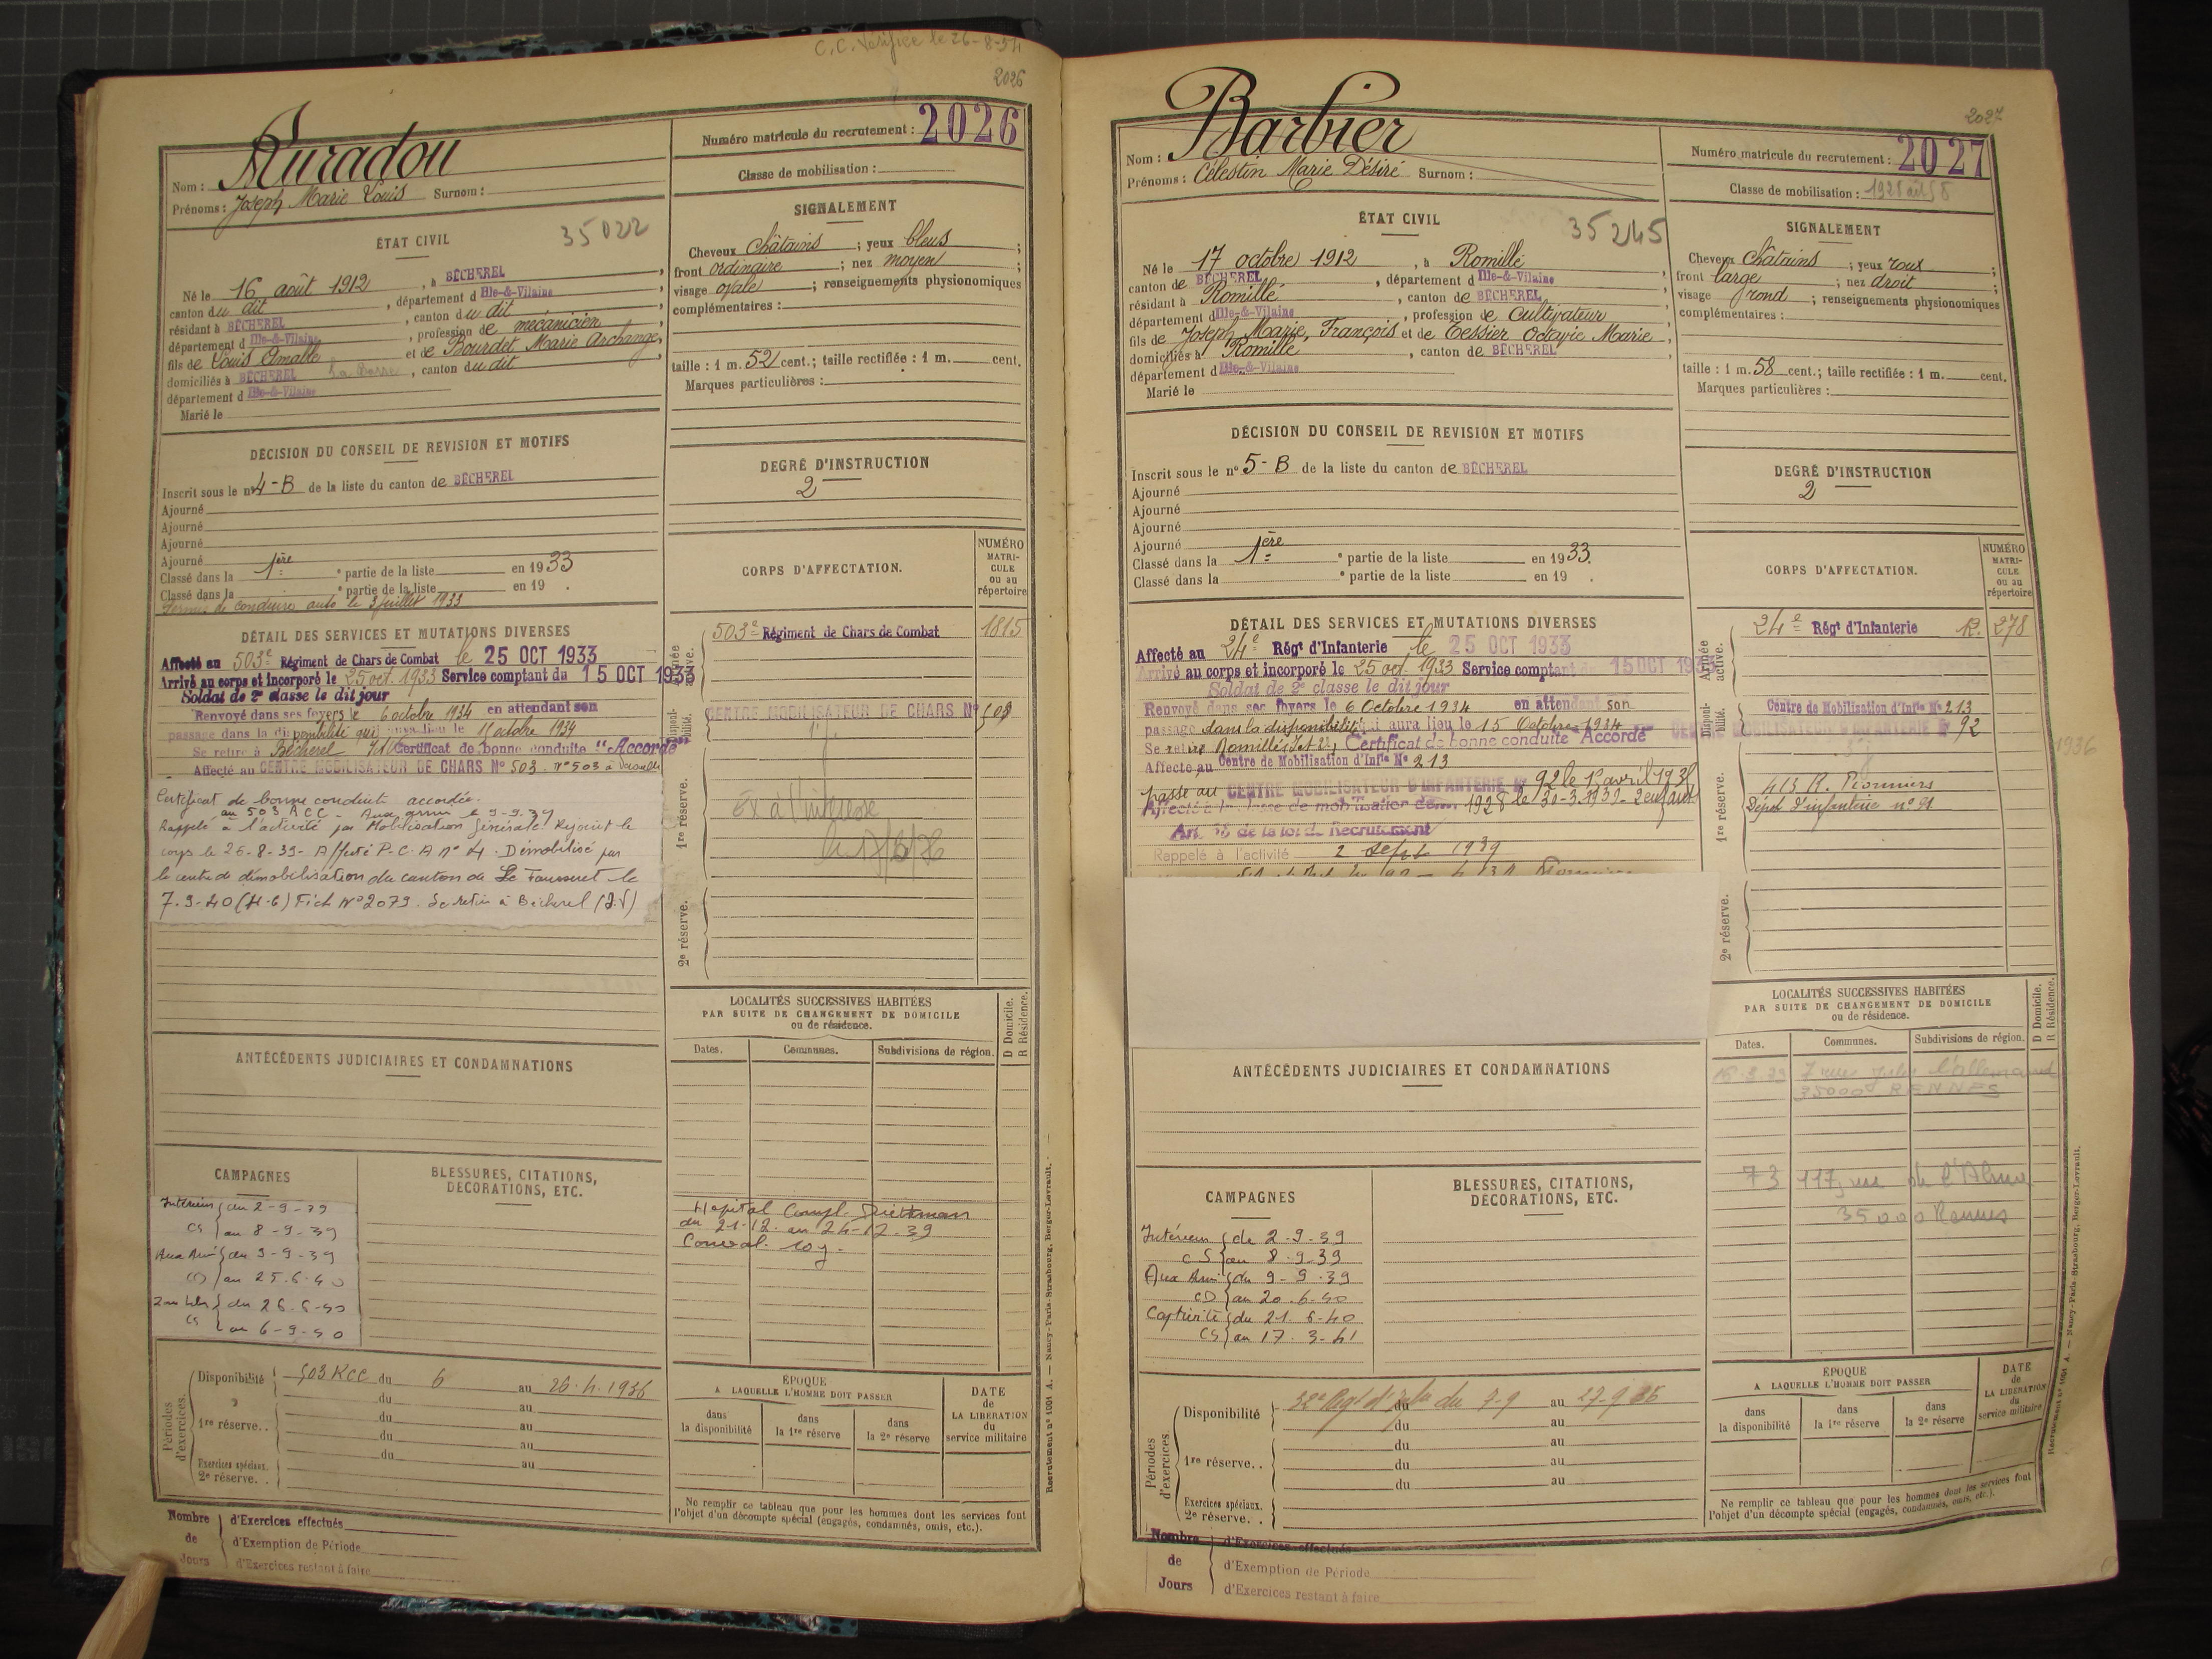 C.C. Vérifiée le 26-8-54
2026
Nom :
Prénoms : Joseph Marie Louis Surnom :
Numéro matricule du recrutement : 2026
Classe de mobilisation :
ÉTAT CIVIL
35022
Né le 16 août 1912, à BÉCHEREL,
canton du dit, département d Ille-&-Vilaine,
résidant à BÉCHEREL, canton du dit,
département d Ille-&-Vilaine, profession de mécanicien,
fils de Louis Amable et de Bourdet Marie Archange,
domiciliés à BÉCHEREL, canton du dit
département d Ille-&-Vilaine
Marié le
SIGNALEMENT
Cheveux Châtains ; yeux bleus ;
front ordinaire ; nez moyen ;
visage ovale ; renseignements physionomiques
complémentaires :
taille : 1 m. 52 cent.; taille rectifiée : 1 m. cent.
Marques particulières :
DÉCISION DU CONSEIL DE REVISION ET MOTIFS
Inscrit sous le n° 4-B de la liste du canton de BÉCHEREL
Ajourné
Ajourné
Ajourné
Ajourné
Classé dans la 1ère e partie de la liste en 1933
Classé dans la e partie de la liste en 19 .
Permis de conduire auto le 3 juillet 1933
DEGRÉ D'INSTRUCTION
2
DÉTAIL DES SERVICES ET MUTATIONS DIVERSES
Affecté au 503e Régiment de Chars de Combat le 25 OCT 1933
Arrivé au corps et incorporé le 25 oct. 1933 Service comptant du 15 OCT 1933
Soldat de 2e classe le dit jour
Renvoyé dans ses foyers le 6 octobre 1934 en attendant son
passage dans la disponibilité qui aura lieu le 15 octobre 1934
Se retire à Bécherel Certificat de bonne conduite "Accordé"
Affecté au CENTRE MOBILISATEUR DE CHARS N° 503
Certificat de bonne conduite accordée.
au 503 RCC - Aux armées le 9-9-39
Rappelé à l'activité par Mobilisation Générale. Rejoint le
corps le 26-8-39 - Affecté P.C.A n° 4. Démobilisé par
le centre de démobilisation du canton de Le Fousseret le
7-9-40 (H.G) Fich N° 2079. Se retire à Bécherel (I.V)
CORPS D'AFFECTATION.
NUMÉRO MATRICULE ou au répertoire
Armée active.
503e Régiment de Chars de Combat 1815
Disponibilité.
CENTRE MOBILISATEUR DE CHARS N° 503
1re réserve.
2e réserve.
LOCALITÉS SUCCESSIVES HABITÉES
PAR SUITE DE CHANGEMENT DE DOMICILE
ou de résidence.
D Domicile. R Résidence.
Dates. Communes. Subdivisions de région.
Hopital Compl.
du 21-12 au 24-12-39
Conval. 10 j.
ANTÉCÉDENTS JUDICIAIRES ET CONDAMNATIONS
CAMPAGNES
Intérieur du 2-9-39
CS au 8-9-39
Aux Arm du 9-9-39
CD au 25-6-40
Zone Libre du 26-6-40
CS au 6-9-40
BLESSURES, CITATIONS,
DÉCORATIONS, ETC.
Périodes d'exercices.
Disponibilité 503 RCC du 6 au 26-4-1936
du au
1re réserve. . du au
du au
Exercices spéciaux. du au
2e réserve. .
ÉPOQUE
A LAQUELLE L'HOMME DOIT PASSER
dans la disponibilité
dans la 1re réserve
dans la 2e réserve
DATE de LA LIBÉRATION du service militaire
Ne remplir ce tableau que pour les hommes dont les services font
l'objet d'un décompte spécial (engagés, condamnés, omis, etc.).
Nombre de Jours
d'Exercices effectués
d'Exemption de Période
d'Exercices restant à faire
Recrutement n° 1001 A. — Nancy-Paris-Strasbourg, Berger-Levrault.
2027
Nom : Barbier
Prénoms : Célestin Marie Désiré Surnom :
Numéro matricule du recrutement : 2027
Classe de mobilisation :
ÉTAT CIVIL
35245
Né le 17 octobre 1912, à Romillé
canton de BÉCHEREL, département d Ille-&-Vilaine,
résidant à Romillé, canton de BÉCHEREL,
département d Ille-&-Vilaine, profession de Cultivateur,
fils de Joseph, Marie, François et de Tessier Octavie Marie,
domiciliés à Romillé, canton de BÉCHEREL
département d Ille-&-Vilaine
Marié le
SIGNALEMENT
Cheveux Châtains ; yeux roux ;
front large ; nez droit ;
visage rond ; renseignements physionomiques
complémentaires :
taille : 1 m. 58 cent.; taille rectifiée : 1 m. cent.
Marques particulières :
DÉCISION DU CONSEIL DE REVISION ET MOTIFS
Inscrit sous le n° 5-B de la liste du canton de BÉCHEREL
Ajourné
Ajourné
Ajourné
Ajourné
Classé dans la 1ère e partie de la liste en 1933.
Classé dans la e partie de la liste en 19 .
DEGRÉ D'INSTRUCTION
2
DÉTAIL DES SERVICES ET MUTATIONS DIVERSES
Affecté au 24e Régt d'Infanterie le 25 OCT 1933
Arrivé au corps et incorporé le 25 oct. 1933 Service comptant du 15 OCT 1933
Soldat de 2e classe le dit jour
Renvoyé dans ses foyers le 6 Octobre 1934 en attendant son
passage dans la disponibilité qui aura lieu le 15 Octobre 1934
Se retire Romillé, I et V, Certificat de bonne conduite "Accordé"
Affecté au Centre de Mobilisation d'Infie N° 213
passé au CENTRE MOBILISATEUR D'INFANTERIE N° 92 le 1er avril 1936
Affecté à la classe de mobilisation de 1928 le 30-3-1939 - 2 enfants
Art. 58 de la loi de Recrutement
Rappelé à l'activité 2 sept 1939
CORPS D'AFFECTATION.
NUMÉRO MATRICULE ou au répertoire
Armée active.
24e Régt d'Infanterie R. 278
Disponibilité.
Centre de Mobilisation d'Infie N° 213
CENTRE MOBILISATEUR D'INFANTERIE N° 92
1936
1re réserve.
413 R. Pionniers
Dépôt d'infanterie n° 91
2e réserve.
LOCALITÉS SUCCESSIVES HABITÉES
PAR SUITE DE CHANGEMENT DE DOMICILE
ou de résidence.
D Domicile. R Résidence.
Dates. Communes. Subdivisions de région.
7 rue Jules Lallemand
35000 RENNES
73 117, rue de l'Alma
35000 Rennes
ANTÉCÉDENTS JUDICIAIRES ET CONDAMNATIONS
CAMPAGNES
Intérieur de 2-9-39
CS au 8-9-39
Aux Arm du 9-9-39
CD au 20-6-40
Captivité du 21-6-40
CS au 17-3-41
BLESSURES, CITATIONS,
DÉCORATIONS, ETC.
Périodes d'exercices.
Disponibilité du 7-9 au 27-9 36
du au
1re réserve. . du au
du au
du au
Exercices spéciaux.
2e réserve. .
ÉPOQUE
A LAQUELLE L'HOMME DOIT PASSER
dans la disponibilité
dans la 1re réserve
dans la 2e réserve
DATE de LA LIBÉRATION du service militaire
Ne remplir ce tableau que pour les hommes dont les services font
l'objet d'un décompte spécial (engagés, condamnés, omis, etc.).
Nombre de Jours
d'Exercices effectués
d'Exemption de Période
d'Exercices restant à faire
Recrutement n° 1001 A. — Nancy-Paris-Strasbourg, Berger-Levrault.